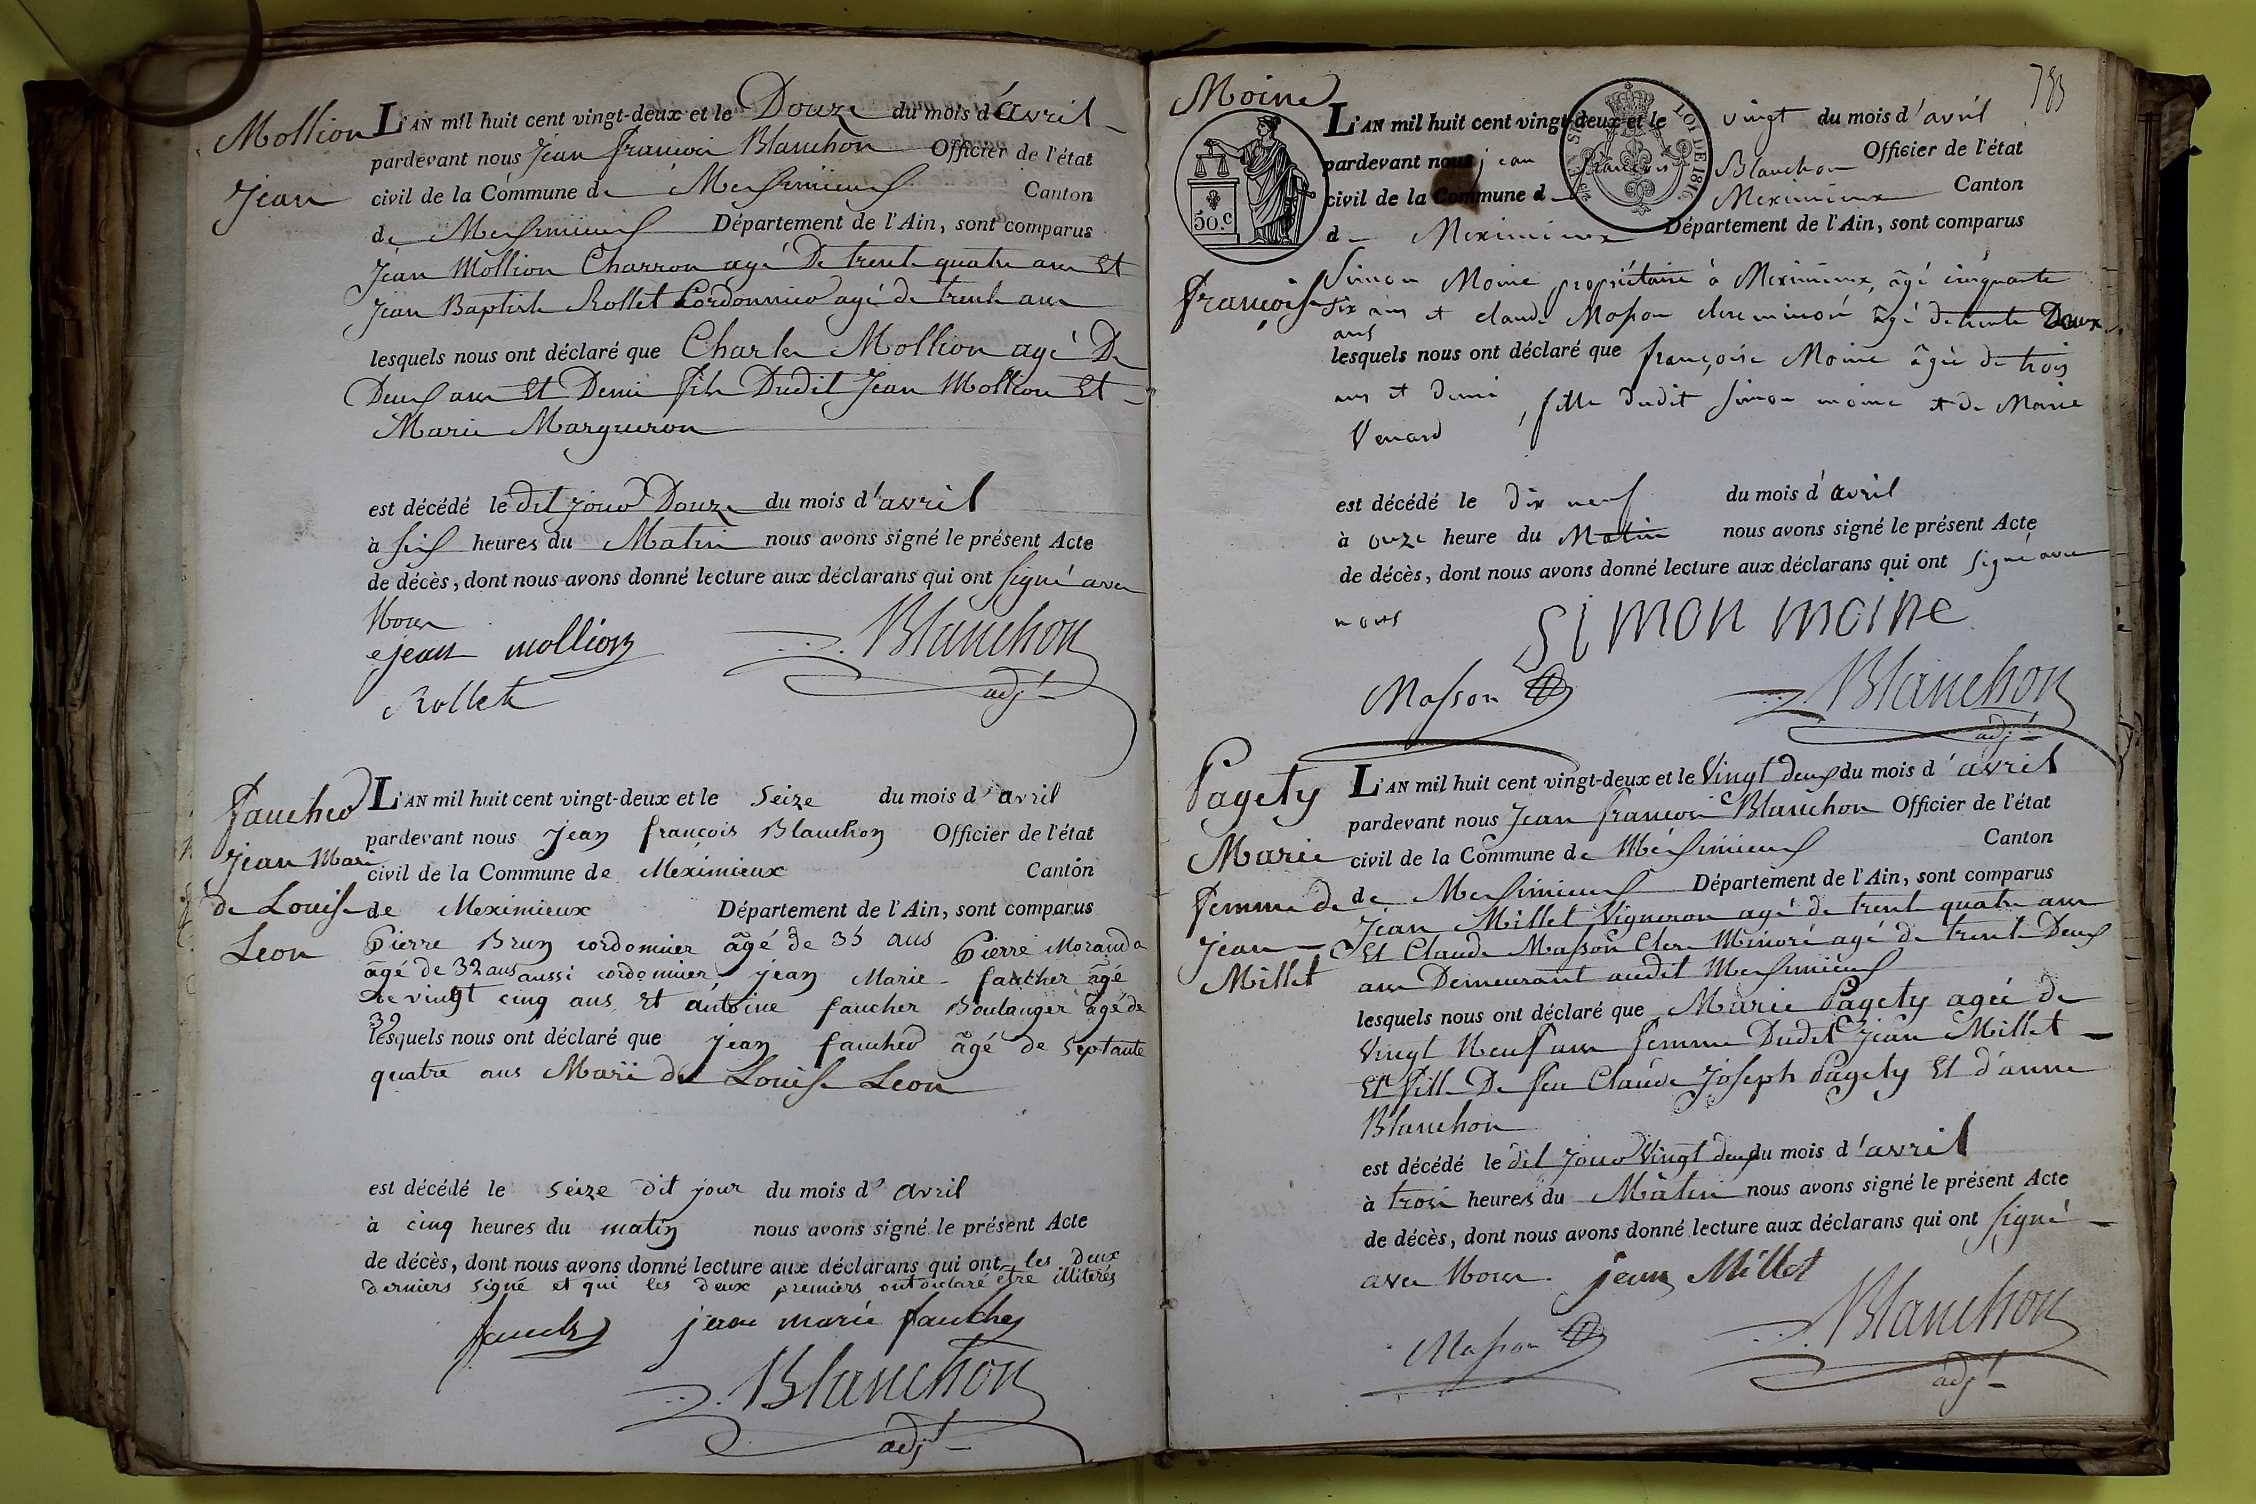 Mollion
Jean
L'AN mil huit cent vingt-deux et le Douze du mois d'avril
pardevant nous Jean françois Blanchon Officier de l'état
civil de la Commune de Meximieux Canton
de Meximieux Département de l'Ain, sont comparus
Jean Mollion Charron agé De trente quatre ans Et
Jean Baptiste Rollet Cordonnier agé de trente ans
lesquels nous ont déclaré que Charles Mollion agé De
Deux ans Et Demi fils Dudit Jean Mollion Et
Marie Margueron
est décédé le dit jour Douze du mois d'avril
à six heures du Matin nous avons signé le présent Acte
de décès, dont nous avons donné lecture aux déclarans qui ont signé avec
Nous
jean mollion Blanchon
Rollet adjt
faucher
jean Mari
de Louise
Leon
L'AN mil huit cent vingt-deux et le Seize du mois d'avril
pardevant nous jean françois Blanchon Officier de l'état
civil de la Commune de Meximieux Canton
de Meximieux Département de l'Ain, sont comparus
Pierre Brun cordonnier âgé de 35 ans Pierre Morand
âgé de 32 ans aussi cordonnier jean Marie faucher âgé
de vingt cinq ans Et antoine faucher Boulanger âgé de
39
lesquels nous ont déclaré que jean faucher âgé de septante
quatre ans Mari de Louise Leon
est décédé le seize dit jour du mois d'avril
à cinq heures du matin nous avons signé le présent Acte
de décès, dont nous avons donné lecture aux déclarans qui ont les deux
derniers signé et qui les deux premiers ont déclaré être illiterés
faucher jean marie faucher
Blanchon
adjt
783
Moine
françoise
50.c
LOI DE 1816
L'AN mil huit cent vingt-deux et le vingt du mois d'avril
pardevant nous jean françois Blanchon Officier de l'état
civil de la Commune d Meximieux Canton
d Meximieux Département de l'Ain, sont comparus
Simon Moine propriétaire à Meximieux, âgé cinquante
six ans et claude Masson clerc minoré âgé de trente Deux
ans
lesquels nous ont déclaré que françoise Moine âgée de trois
ans et demi, fille dudit simon moine et de Marie
Venard
est décédé le dix neuf du mois d'avril
à onze heure du Matin nous avons signé le présent Acte
de décès, dont nous avons donné lecture aux déclarans qui ont signé avec
nous
simon moine
Masson Blanchon
adjt
Pagety
Marie
femme de
Jean
Millet
L'AN mil huit cent vingt-deux et le Vingt deux du mois d'avril
pardevant nous Jean françois Blanchon Officier de l'état
civil de la Commune de Méximieux Canton
de Meximieux Département de l'Ain, sont comparus
Jean Millet Vigneron agé de trente quatre ans
Et Claude Masson Clerc Minoré agé de trente Deux
ans Demeurant audit Meximieux
lesquels nous ont déclaré que Marie Pagety agée de
Vingt Neuf ans femme Dudit Jean Millet
Et fille De feu Claude Joseph Pagety Et d'anne
Blanchon
est décédé le dit jour Vingt deux du mois d'avril
à trois heures du Matin nous avons signé le présent Acte
de décès, dont nous avons donné lecture aux déclarans qui ont signé
avec Nous jean Millet
Masson Blanchon
adjt